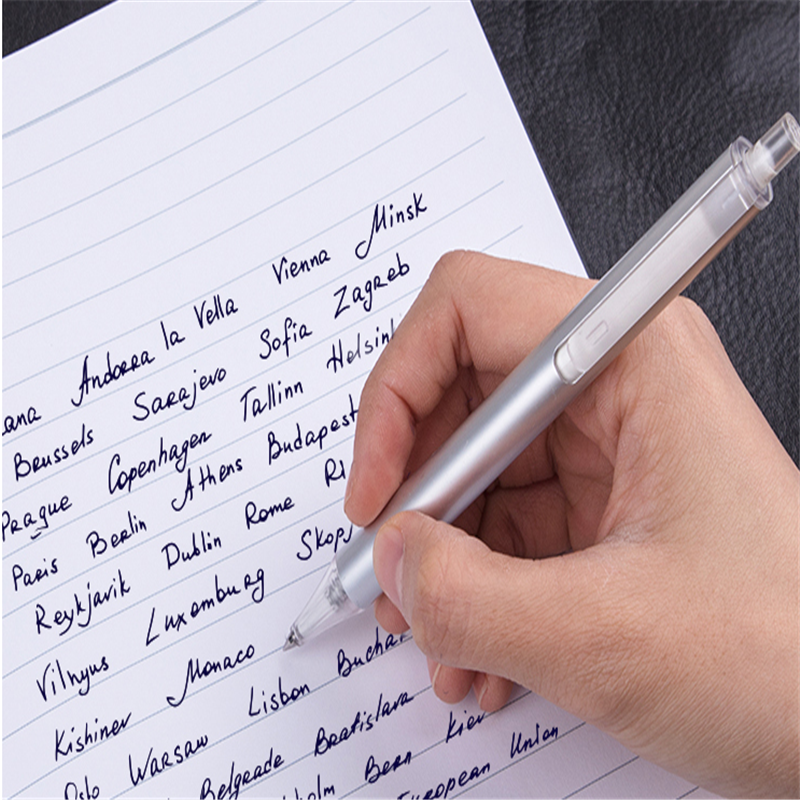 ana Andorra la Vella Vienna Minsk
Brussels Sarajevo Sofia Zagreb
Prague Copenhagen Tallinn Helsinki
Paris Berlin Athens Budapest
Reykjavik Dublin Rome Ri
Vilnyus Luxemburg Skopj
Kishinev Monaco
Oslo Warsaw Lisbon Buchar
Belgrade Bratislava
holm Bern Kiev
European Union